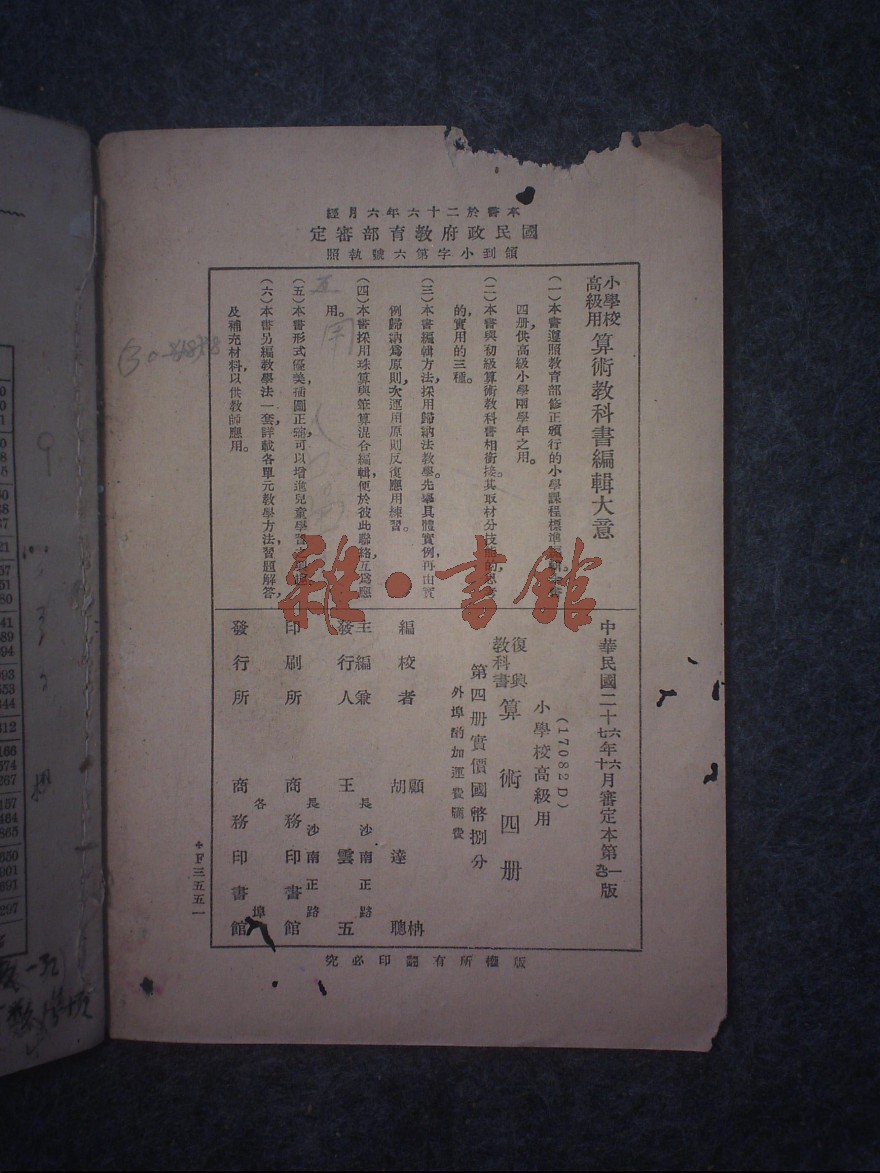 本書於二十六年六月經
國民政府教育部審定
領到小字第六號執照
小學校高級用 算術教科書編輯大意
(一)本書遵照教育部修正頒行的小學課程標準編輯,全書
四册,供高級小學兩學年之用。
(二)本書與初級算術教科書相銜接。其取材分技
的,實用的三種。
(三)本書編輯方法,採用歸納法教學。先舉具體實例,再由實
例歸納爲原則,次運用原則反復應用練習。
(四)本書採用珠算與筆算混合編輯,便於彼此聯絡,互爲應
用。
(五)本書形式優美,插圖正確,可以增進兒童學習
(六)本書另編教學法一套,詳載各單元教學方法,習題解答,
及補充材料,以供教師應用。
中華民國二十六年六月審定本第一版
七 十
(17082D)
小學校高級用
復興教科書 算術四册
第四册實價國幣捌分
外埠酌加運費匯費
編校者 顧枬
胡達聰
主編兼發行人 王雲五
長沙南正路
印刷所 商務印書館
長沙南正路
發行所 商務印書館
各埠
版權所有翻印必究
F三五五一
雜·書館